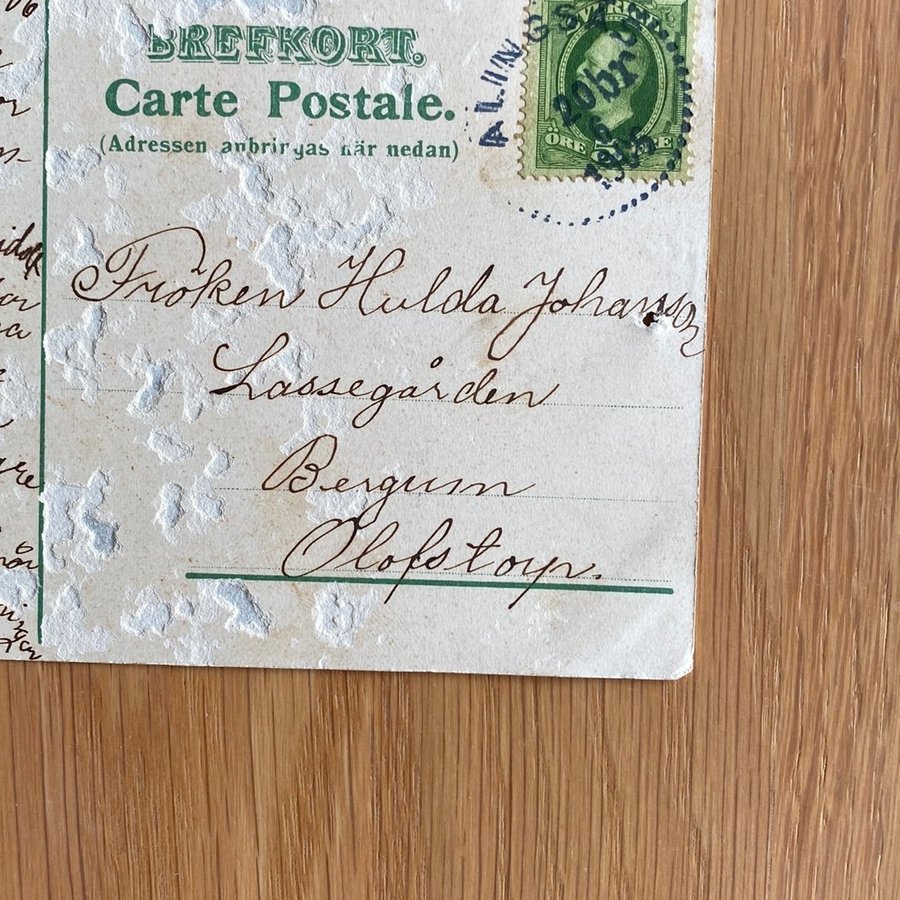 BREFKORT.
Carte Postale.
(Adressen anbringas här nedan)
ALINGSÅS
SVERIGE
ÖRE
Fröken Hulda Johansson
Lassegården
Bergum
Olofstorp.